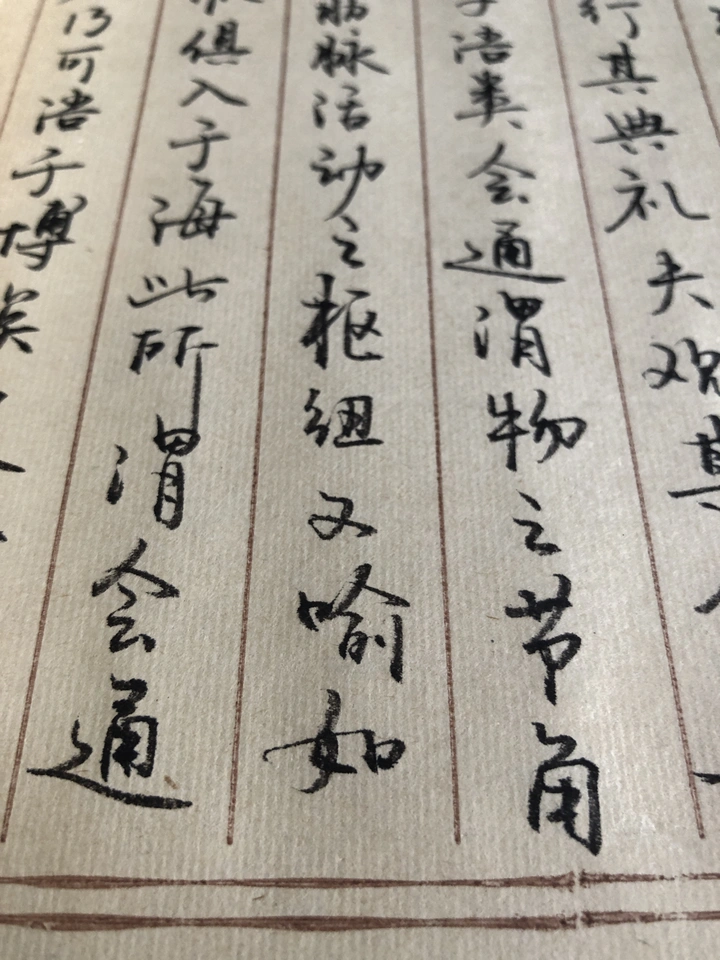 行其典礼夫观其
浩类会通谓物之节角
筋脉活动之枢纽又喻如
俱入于海此所谓会通
可浩于博矣